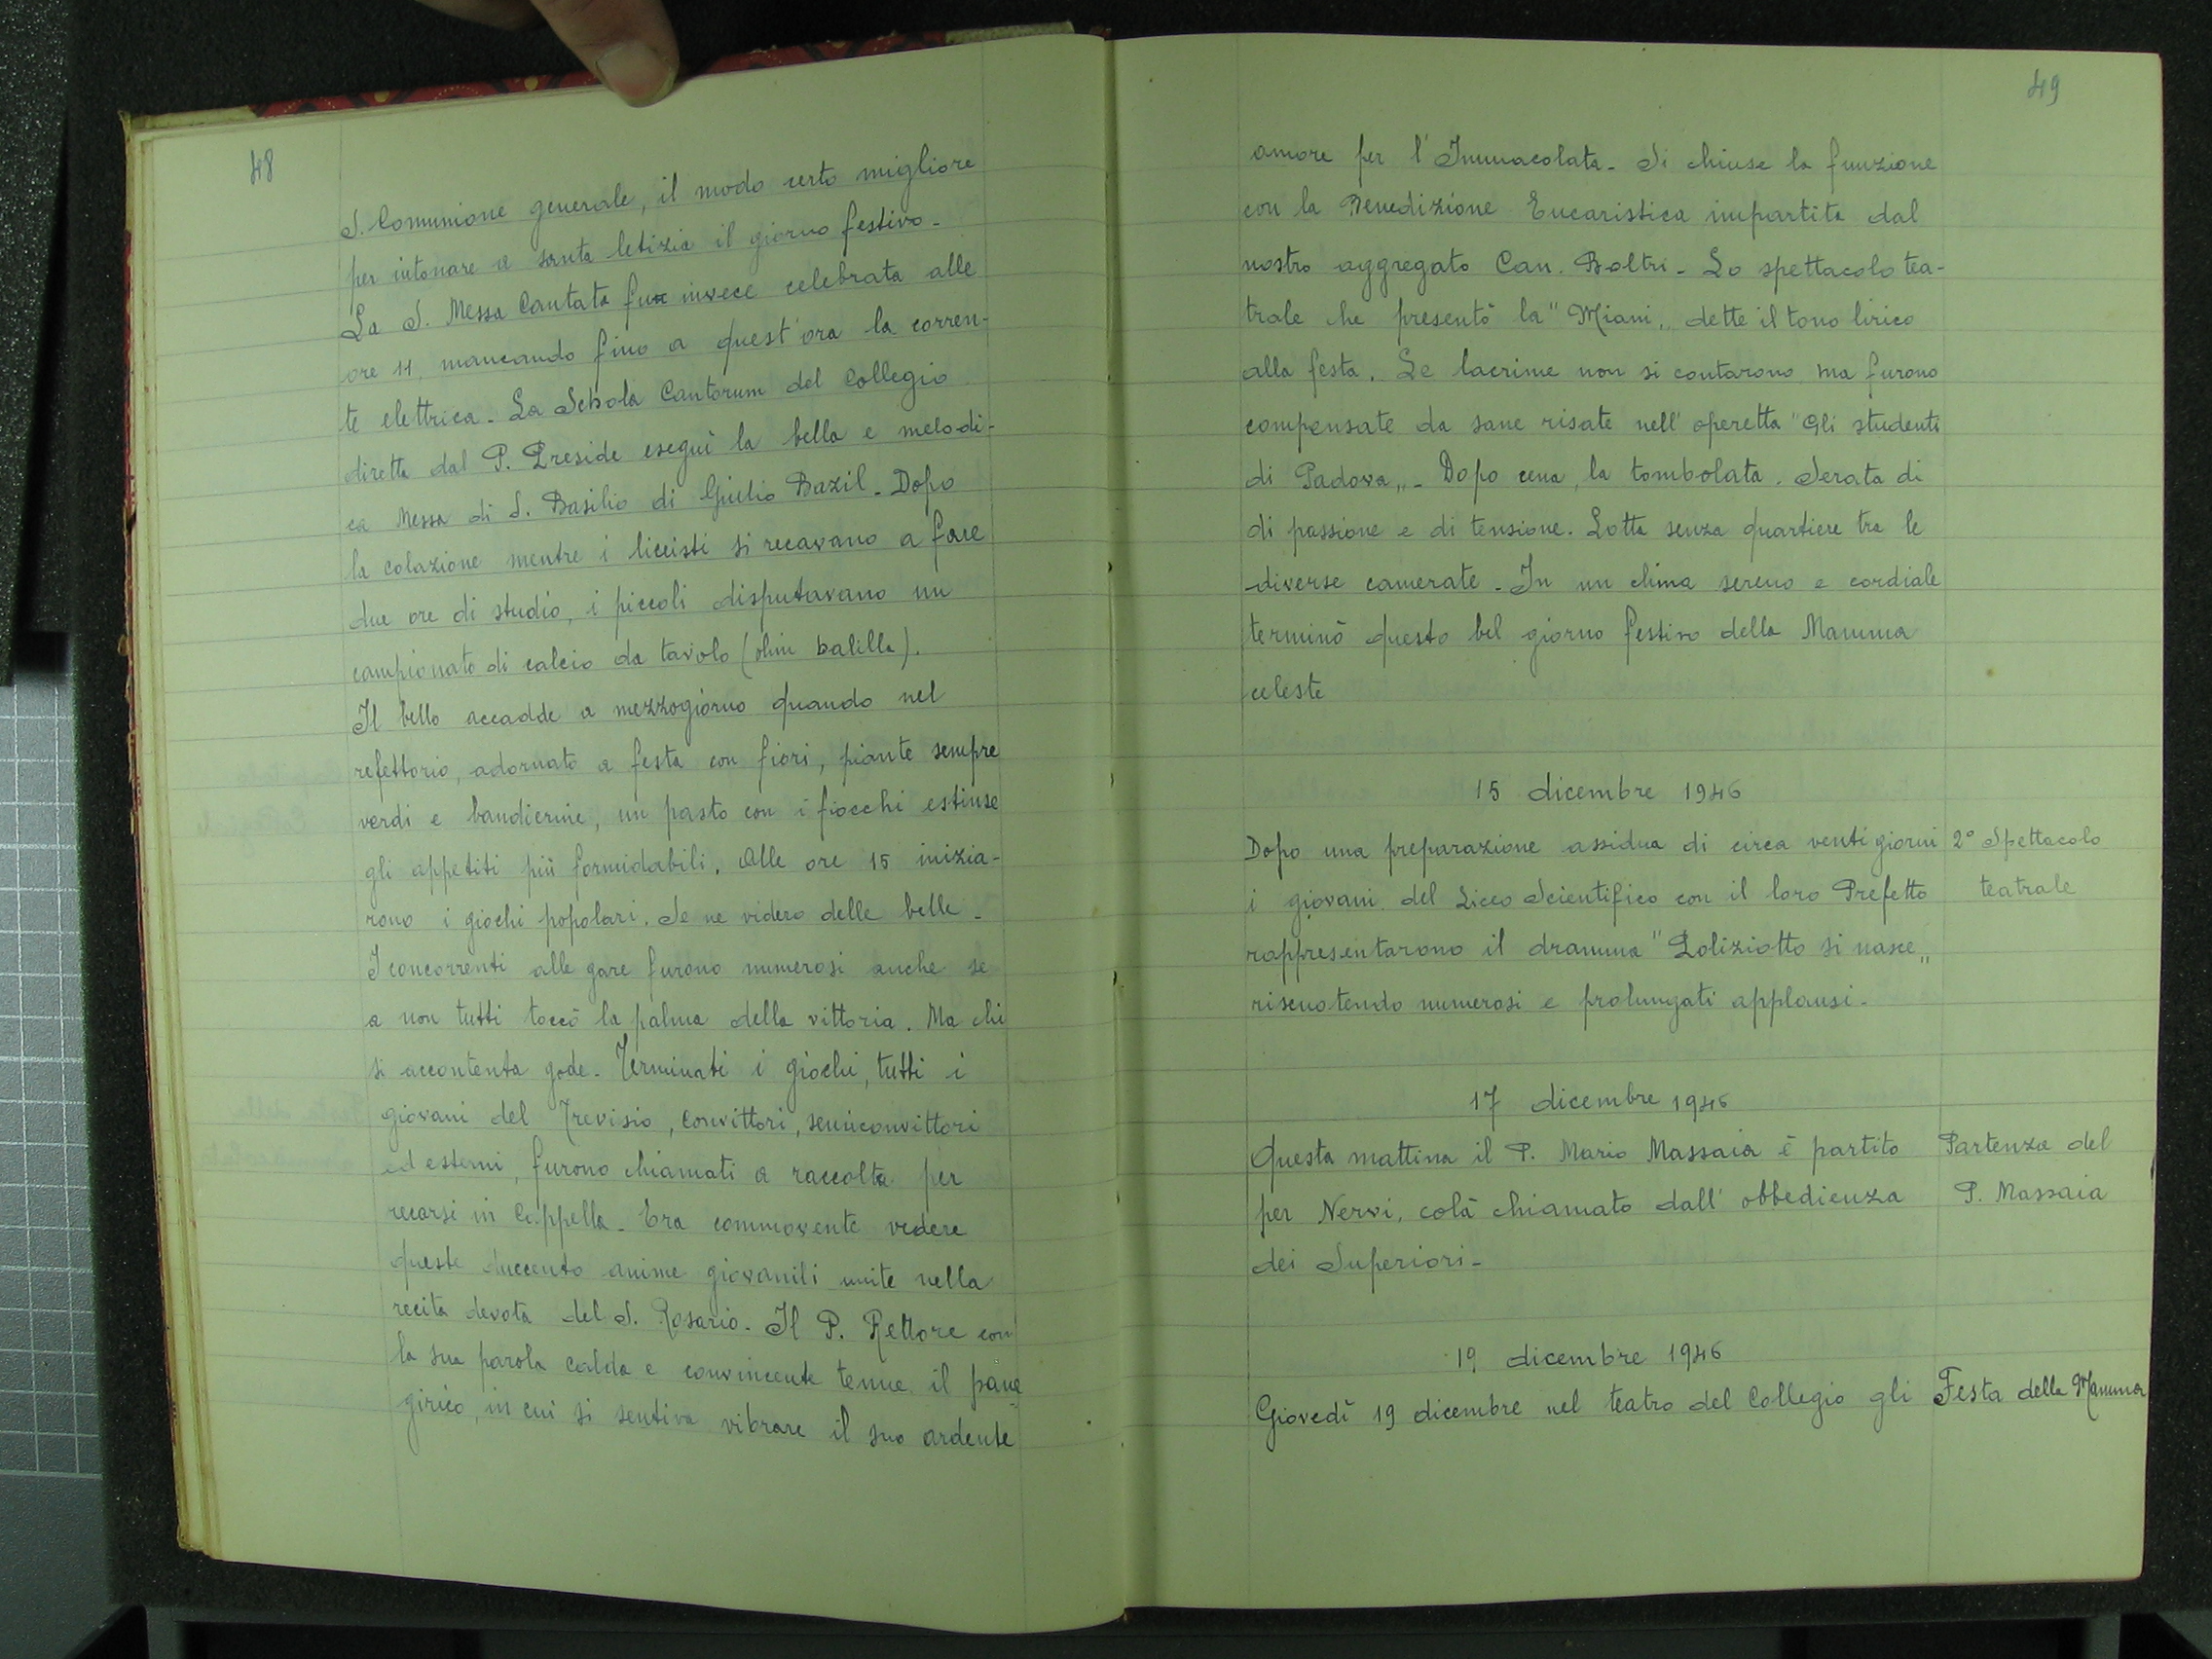 48
S. Comunione generale, il modo certo migliore
per intonare a santa letizia il giorno festivo.
La S. Messa Cantata fu invece celebrata alle
ore 11, mancando fino a quest'ora la corren-
te elettrica. La Schola Cantorum del Collegio
diretta dal P. Preside eseguì la bella e melodi-
ca Messa di S. Basilio di Giulio Bazil. Dopo
la colazione mentre i liceisti si recavano a fare
due ore di studio, i piccoli disputavano un
campionato di calcio da tavolo (olim balilla).
Il bello accadde a mezzogiorno quando nel
refettorio, adornato a festa con fiori, piante sempre
verdi e bandierine, un pasto con i fiocchi estinse
gli appetiti più formidabili. Alle ore 15 inizia-
rono i giochi popolari. Se ne videro delle belle.
I concorrenti alle gare furono numerosi anche se
a non tutti toccò la palma della vittoria. Ma chi
si accontenta gode. Terminati i giochi, tutti i
giovani del Trevisio, convittori, semiconvittori
ed esterni, furono chiamati a raccolta per
recarsi in Cappella. Era commovente vedere
queste duecento anime giovanili unite nella
recita devota del S. Rosario. Il P. Rettore con
la sua parola calda e convincente tenne il pane
girico, in cui si sentiva vibrare il suo ardente
49
amore per l'Immacolata. Si chiuse la funzione
con la Benedizione Eucaristica impartita dal
nostro aggregato Can. Boltri. Lo spettacolo tea-
trale che presentò la "Miani„ dette il tono lirico
alla festa. Le lacrime non si contarono ma furono
compensate da sane risate nell'operetta "Gli studenti
di Padova„. Dopo cena, la tombolata. Serata di
di passione e di tensione. Lotta senza quartiere tra le
diverse camerate. In un clima sereno e cordiale
terminò questo bel giorno festivo della Mamma
celeste
15 dicembre 1946
Dopo una preparazione assidua di circa venti giorni 2° Spettacolo
i giovani del Liceo Scientifico con il loro Prefetto teatrale
rappresentarono il dramma "Poliziotto si nasce„
riscuotendo numerosi e prolungati applausi.
17 dicembre 1946
Questa mattina il P. Mario Massaia è partito Partenza del
per Nervi, colà chiamato dall'obbedienza P. Massaia
dei Superiori.
19 dicembre 1946
Giovedì 19 dicembre nel teatro del Collegio gli Festa della Mamma